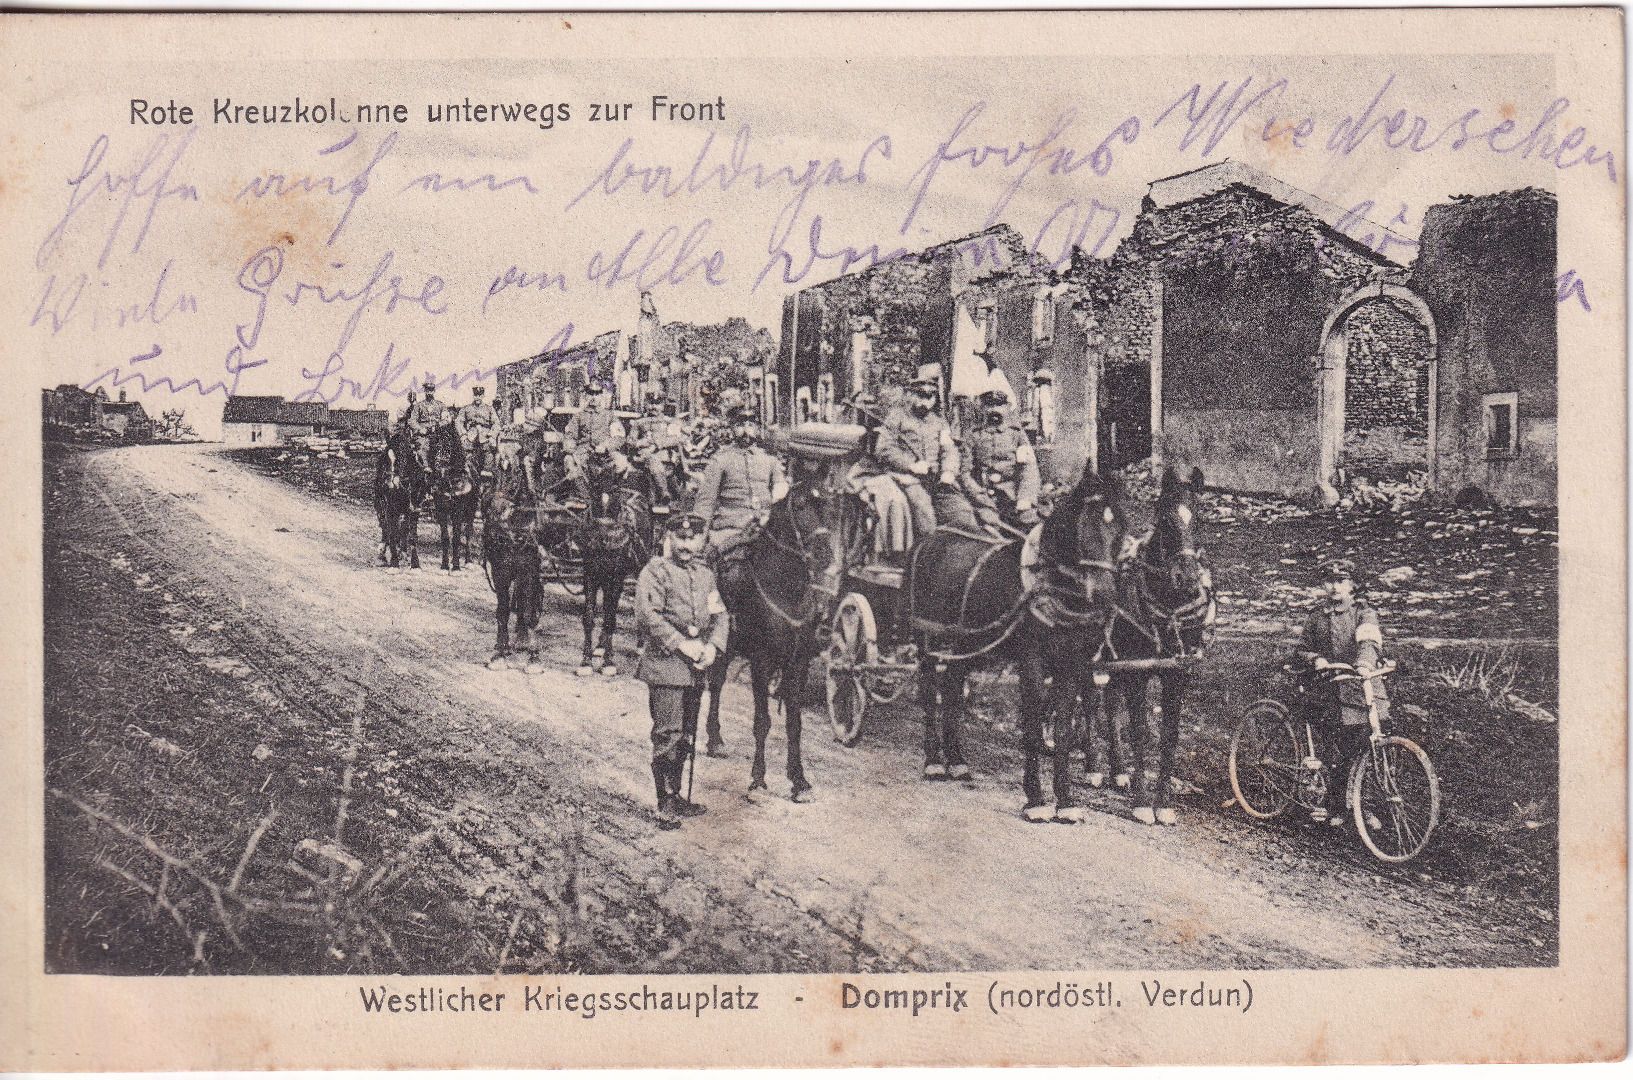 Rote Kreuzkolonne unterwegs zur Front
hoffe auf ein baldiges frohes Wiedersehen
Viele Grüsse an Alle Dein
und bekannte
Westlicher Kriegsschauplatz - Domprix (nordöstl. Verdun)